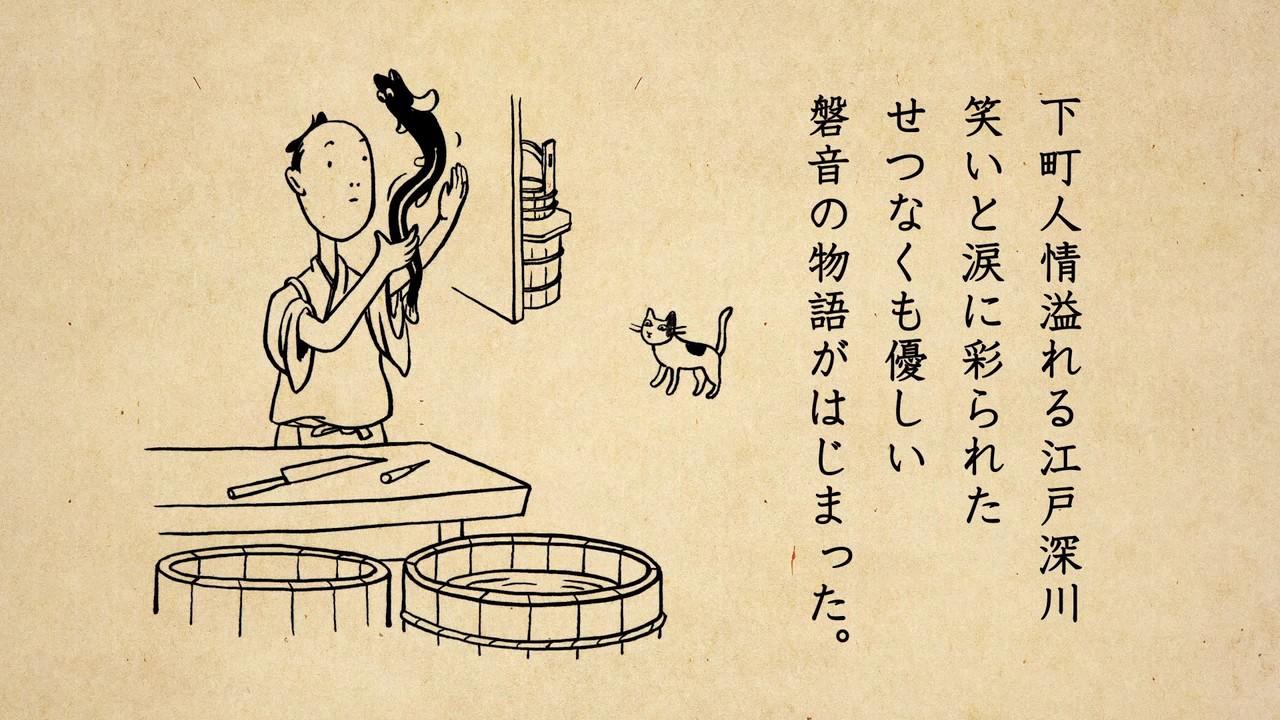 下町人情溢れる江戸深川
笑いと涙に彩られた
せつなくも優しい
磐音の物語がはじまった。